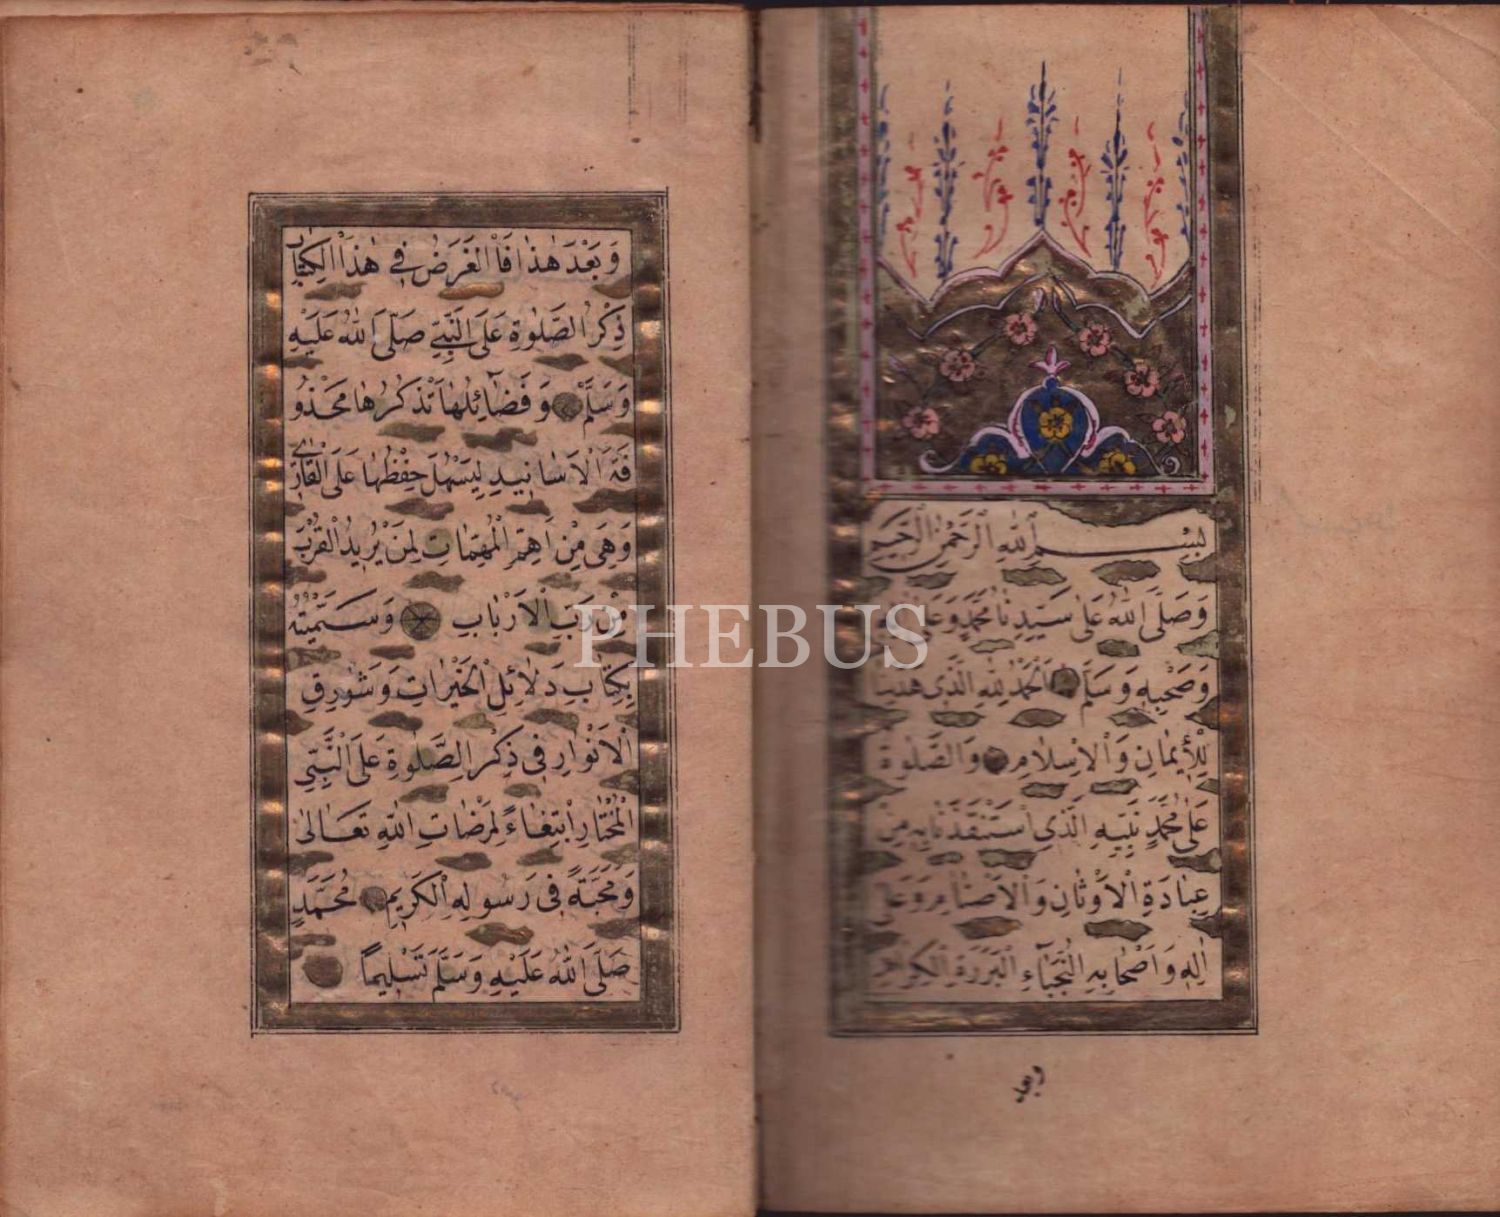 بِسْمِ اللهِ الرَّحْمٰنِ الرَّحِيمِ
وَصَلَّى اللهُ عَلٰى سَيِّدِنَا مُحَمَّدٍ وَعَلٰى
وَصَحْبِهِ وَسَلَّمَ اَلْحَمْدُ لِلّٰهِ الَّذِى هَدٰينَا
لِلْاِيمَانِ وَالْاِسْلَامِ وَالصَّلٰوةُ
عَلٰى مُحَمَّدٍ نَبِيِّهِ الَّذِى اسْتَنْقَذَنَا بِهِ مِنْ
عِبَادَةِ الْاَوْثَانِ وَالْاَصْنَامِ وَعَلٰى
اٰلِهِ وَاَصْحَابِهِ النُّجَبَاءِ الْبَرَرَةِ الْكِرَامِ
وبعد
وَبَعْدَ هٰذَا فَالْغَرَضُ فِى هٰذَا الْكِتَابِ
ذِكْرُ الصَّلٰوةِ عَلَى النَّبِىِّ صَلَّى اللهُ عَلَيْهِ
وَسَلَّمَ وَفَضَائِلُهَا نَذْكُرُهَا مَحْذُو
فَةَ الْاَسَانِيدِ لِيَسْهُلَ حِفْظُهَا عَلَى الْقَارِى
وَهِىَ مِنْ اَهَمِّ الْمُهِمَّاتِ لِمَنْ يُرِيدُ الْقُرْبَ
مِنْ رَبِّ الْاَرْبَابِ وَسَمَّيْتُهُ
بِكِتَابِ دَلَائِلِ الْخَيْرَاتِ وَشَوَارِقِ
الْاَنْوَارِ فِى ذِكْرِ الصَّلٰوةِ عَلَى النَّبِىِّ
الْمُخْتَارِ ابْتِغَاءً لِمَرْضَاتِ اللهِ تَعَالٰى
وَمَحَبَّةً فِى رَسُولِهِ الْكَرِيمِ مُحَمَّدٍ
صَلَّى اللهُ عَلَيْهِ وَسَلَّمَ تَسْلِيمًا
PHEBUS